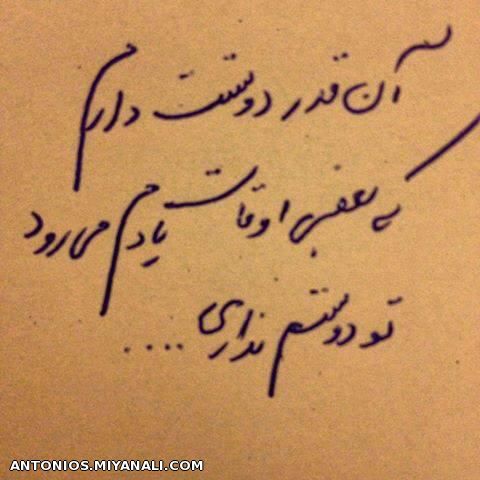 آن قدر دوستت دارم
که بعضی اوقات یادم می رود
تو دوستم نداری....
ANTONIOS.MIYANALI.COM